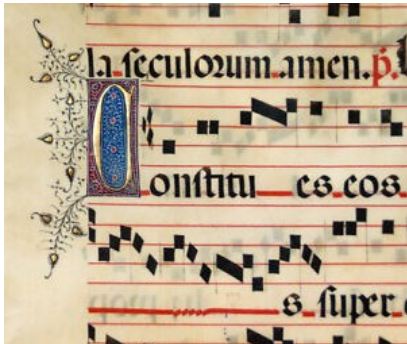 la seculorum amen. p̄.
Constitu es eos
s super